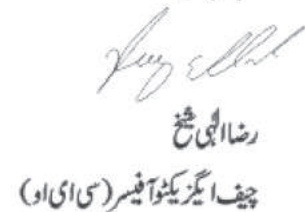 رضا الہی شیخ
چیف ایگزیکٹو آفیسر (سی ای او)